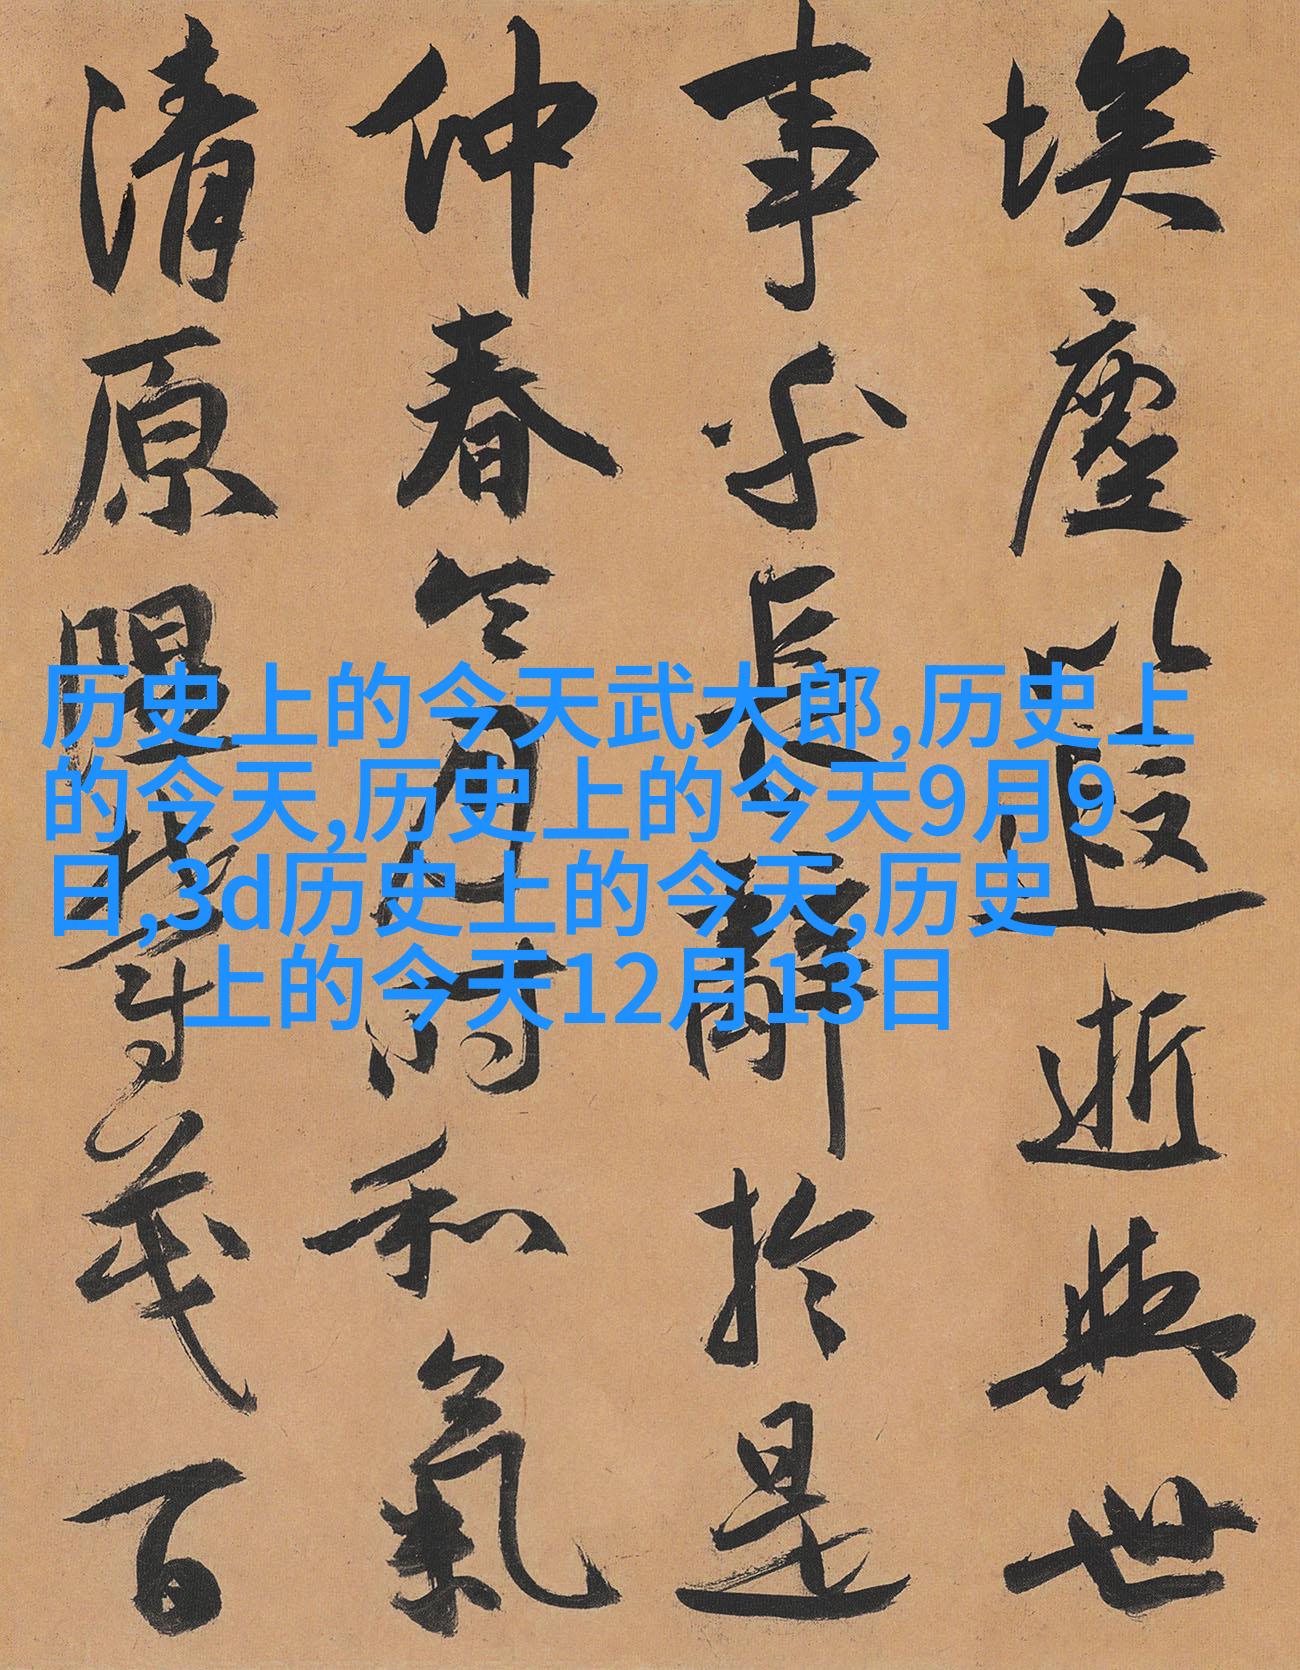 埃塵以遐逝與世
事乎長辭於是
仲春令月時和氣
清原隰茂百
历史上的今天武大郎,历史上
的今天,历史上的今天9月9
日,3d历史上的今天,历史
上的今天12月13日